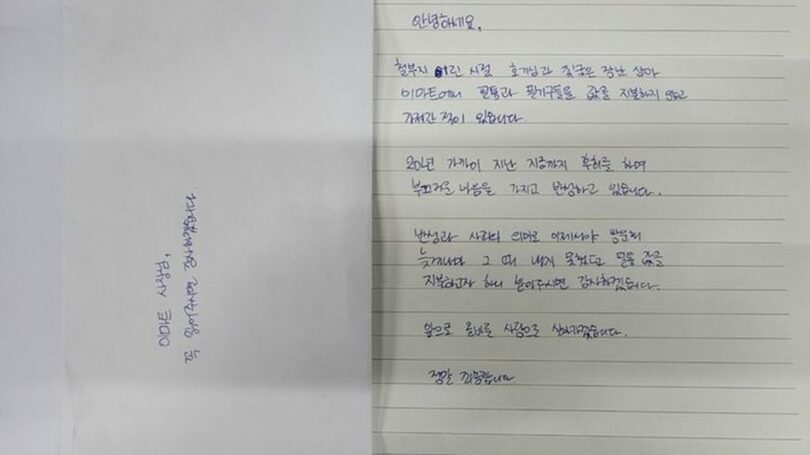 안녕하세요.
철부지 어린 시절 호기심과 짓궂은 장난 삼아
이마트에서 필통과 필기구들을 값을 지불하지 않고
가져간 적이 있습니다.
20년 가까이 지난 지금까지 후회를 하며
부끄러운 마음을 가지고 반성하고 있습니다.
반성과 사과의 의미로 이제서야 방문해
늦게나마 그 때 내지 못했던 물품 값을
지불하고자 하니 받아주시면 감사하겠습니다.
앞으로 올바른 사람으로 살아가겠습니다.
정말 죄송합니다
꼭 읽어주시면 감사하겠습니다